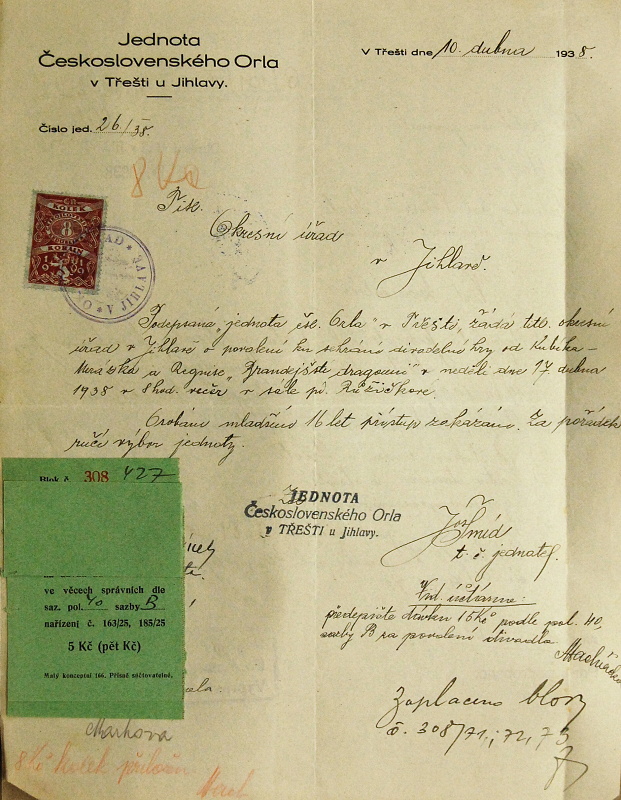 Jednota
Československého Orla
v Třešti u Jihlavy.
V Třešti dne 10. dubna 1938.
Číslo jed. 26/38.
8 Kč
KOLEK
8
KORUN
Okresní úřad
v Jihlavě.
Podepsaná „jednota čsl. Orla" v Třešti, žádá tit. okresní
úřad v Jihlavě o povolení ku sehrání divadelní hry od Kubíka-
a v neděli dne 17. dubna
1938 v 8 hod. večer v sále pí. Růžičkové.
Osobám mladším 16 let přístup zakázán. Za pořádek
ručí výbor jednoty.
Blok č. 308 427
JEDNOTA
Československého Orla
v TŘEŠTI u Jihlavy.
Jos. Šmíd
t. č. jednatel.
ve věcech správních dle
saz. pol. 40 sazby B
nařízení č. 163/25, 185/25
5 Kč (pět Kč)
Malý konceptní 166. Přísně súčtovatelné.
předepište dávku 15 Kč podle pol. 40,
sazby B za povolení divadla
Zaplaceno bloky
č. 308/71, 72, 73
8 Kč kolek přiložen